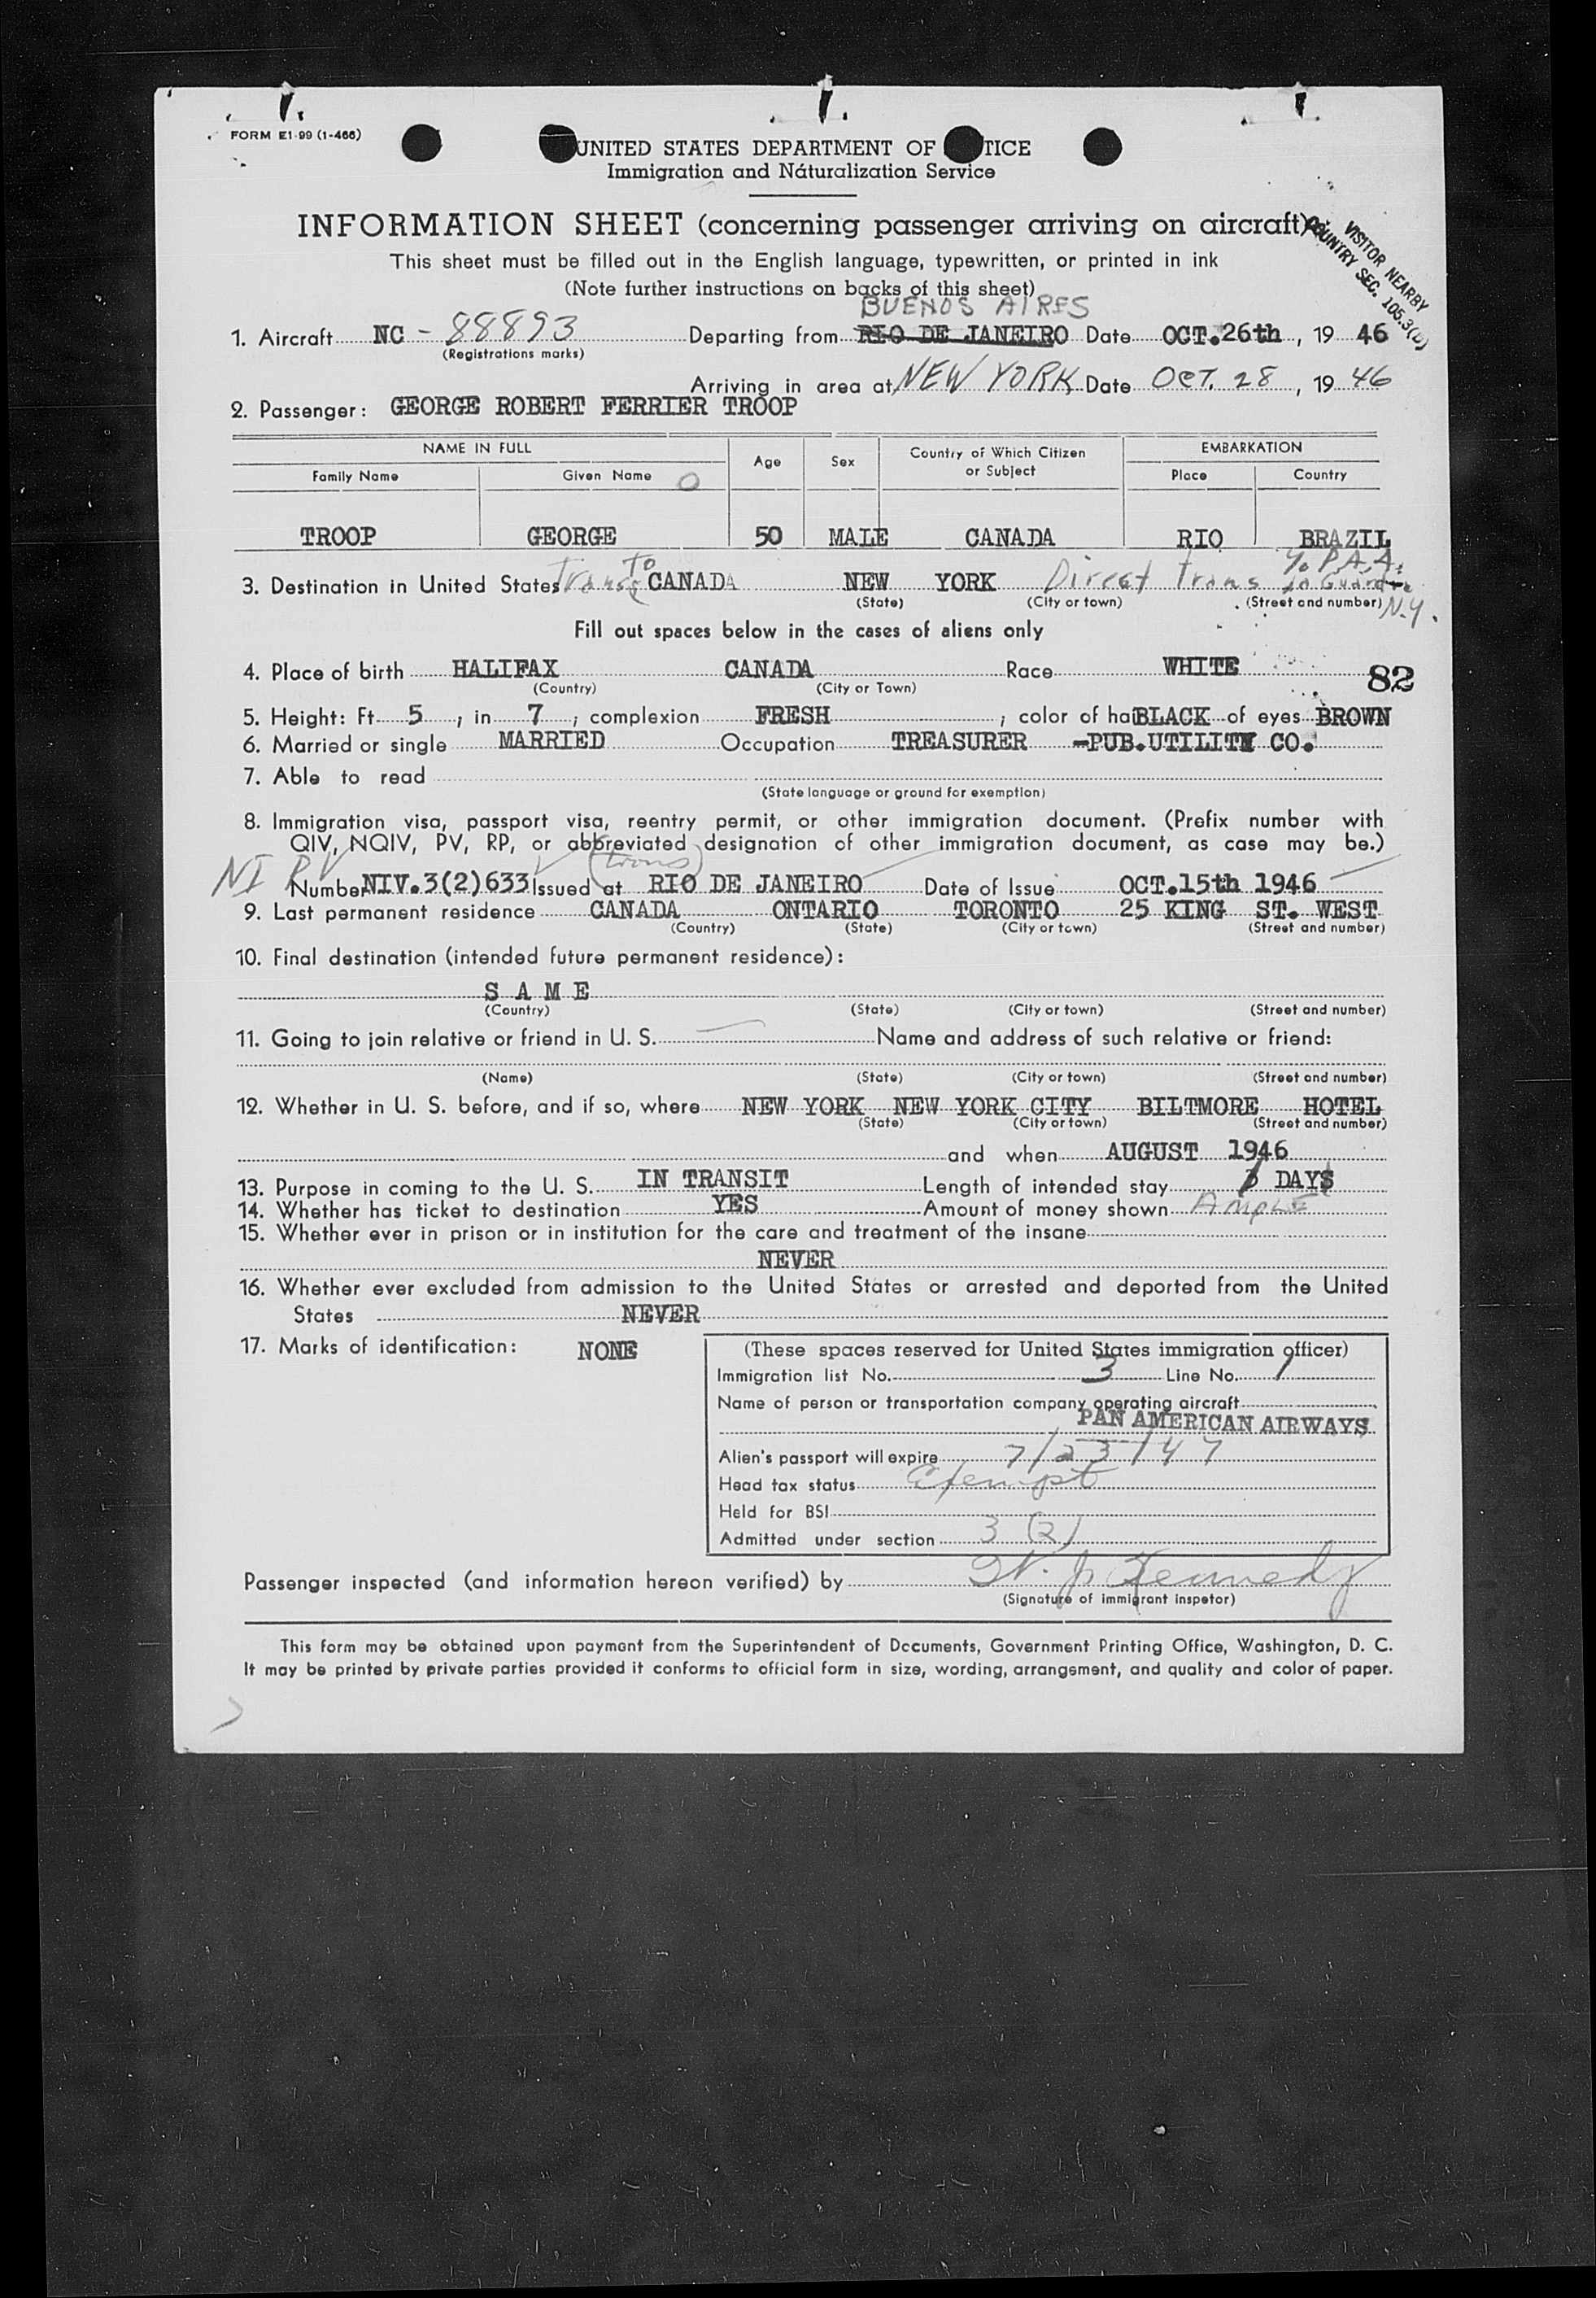 FORM E1-99 (1-466)
UNITED STATES DEPARTMENT OF TICE
Immigration and Naturalization Service
INFORMATION SHEET (concerning passenger arriving on aircraft)
VISITOR NEARBY
COUNTRY SEC. 105.3(b)
This sheet must be filled out in the English language, typewritten, or printed in ink
(Note further instructions on backs of this sheet)
BUENOS AIRES
1. Aircraft NC - 88893 Departing from RIO DE JANEIRO Date OCT. 26th, 19 46
(Registrations marks)
Arriving in area at NEW YORK Date OCT. 28, 19 46
2. Passenger: GEORGE ROBERT FERRIER TROOP
NAME IN FULL Age Sex Country of Which Citizen or Subject EMBARKATION
Family Name Given Name Place Country
TROOP GEORGE 50 MALE CANADA RIO BRAZIL
3. Destination in United States Trans TO CANADA NEW YORK Direct Trans % P.A.A. La Guardia N.Y.
(State) (City or town) (Street and number)
Fill out spaces below in the cases of aliens only
4. Place of birth HALIFAX CANADA Race WHITE 82
(Country) (City or Town)
5. Height: Ft. 5, in. 7; complexion FRESH; color of hai BLACK of eyes BROWN
6. Married or single MARRIED Occupation TREASURER -PUB.UTILITY CO.
7. Able to read
(State language or ground for exemption)
8. Immigration visa, passport visa, reentry permit, or other immigration document. (Prefix number with
QIV, NQIV, PV, RP, or abbreviated designation of other immigration document, as case may be.)
NI PV (trans)
Number NIV.3(2)633 Issued at RIO DE JANEIRO Date of Issue OCT.15th 1946
9. Last permanent residence CANADA ONTARIO TORONTO 25 KING ST. WEST
(Country) (State) (City or town) (Street and number)
10. Final destination (intended future permanent residence):
S A M E
(Country) (State) (City or town) (Street and number)
11. Going to join relative or friend in U. S. Name and address of such relative or friend:
(Name) (State) (City or town) (Street and number)
12. Whether in U. S. before, and if so, where NEW YORK NEW YORK CITY BILTMORE HOTEL
(State) (City or town) (Street and number)
and when AUGUST 1946
13. Purpose in coming to the U. S. IN TRANSIT Length of intended stay DAYS
14. Whether has ticket to destination YES Amount of money shown AMPLE
15. Whether ever in prison or in institution for the care and treatment of the insane
NEVER
16. Whether ever excluded from admission to the United States or arrested and deported from the United
States NEVER
17. Marks of identification: NONE
(These spaces reserved for United States immigration officer)
Immigration list No. 3 Line No. 1
Name of person or transportation company operating aircraft
PAN AMERICAN AIRWAYS
Alien's passport will expire 7/23/47
Head tax status Exempt
Held for BSI
Admitted under section 3 (2)
Passenger inspected (and information hereon verified) by W. J. Kennedy
(Signature of immigrant inspetor)
This form may be obtained upon payment from the Superintendent of Documents, Government Printing Office, Washington, D. C.
It may be printed by private parties provided it conforms to official form in size, wording, arrangement, and quality and color of paper.